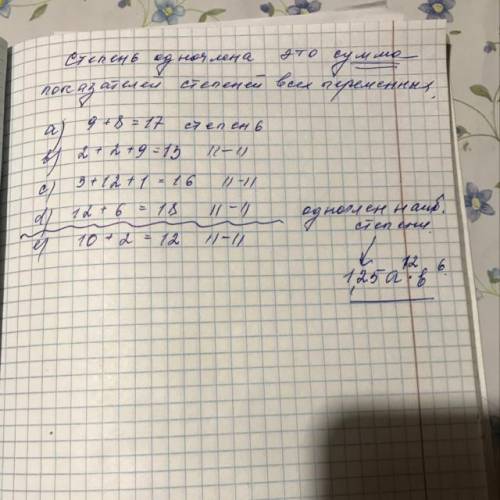 Степень одночлена это сумма
показателей степеней всех переменных.
a) 9+8=17 степень
b) 2+2+9=13 11-11
c) 3+12+1=16 11-11
d) 12+6=18 11-11
e) 10+2=12 11-11
одночлен наиб.
степени
125a¹²·b⁶